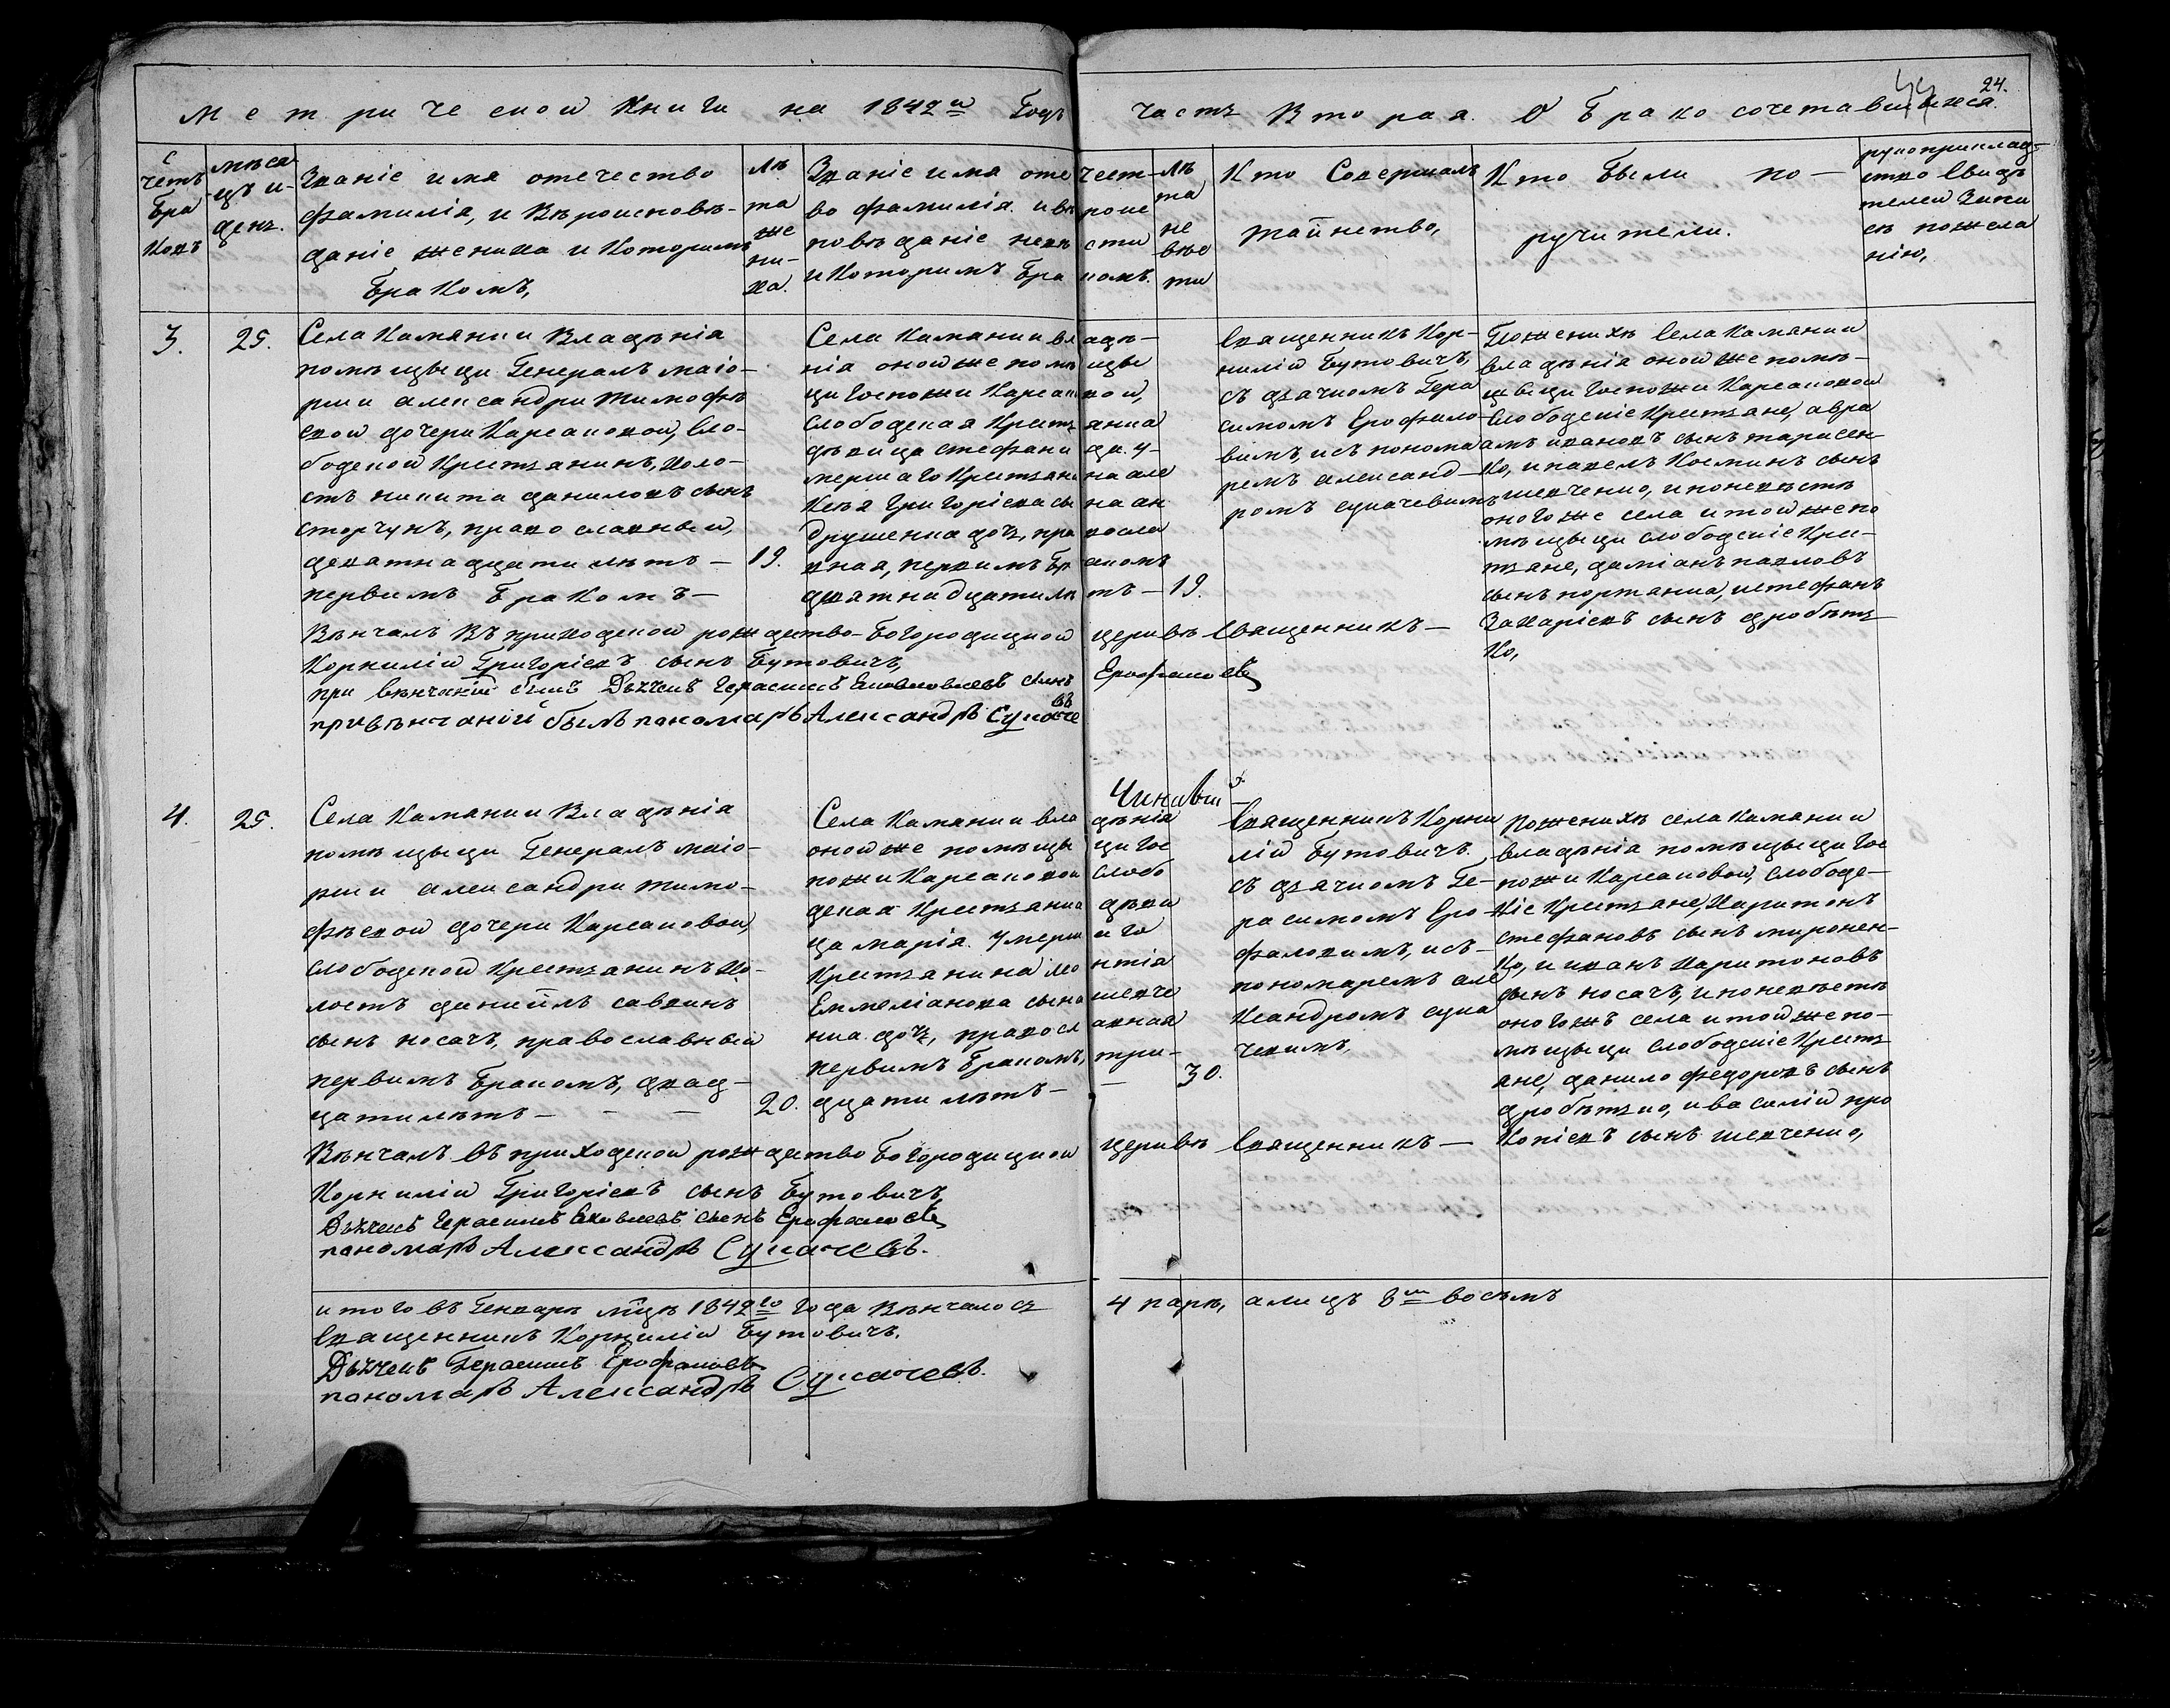 24.
Метрической Книги на 1842й Годъ Часть Вторая. О Бракосочетавшихся.
Счетъ Браковъ
Мѣсяцъ и день.
Званіе имя отечество
фамилія, и Вѣроисповѣ-
даніе жениха и Которимъ
Бракомъ,
лѣ
та
же
ни-
ха.
Званіе имя отечест-
во фамилія и вѣроис
повѣданіе невѣсти
и Которимъ Бракомъ.
лѣ
та
не
вѣс
ти
Кто Совершалъ
таинство,
Кто Были по-
ручители.
рукоприклад-
ство Свидѣ
телей Запи
си по жела
нію,
3.
25.
Села Каманки Владѣнія
помѣщыци Генералъ маіо-
рши александри тимофѣ
евой дочери Карсаковой, Сло-
бодской Крестьянинъ, холо-
стъ никита даниловъ сынъ
сторчунъ, православный,
девятнадцати лѣтъ —
первимъ Бракомъ —
19.
Села Каманки владѣ-
нія оной же помѣщы
ци Госпожи Карсаковой,
Слободская Крестьянка
дѣвица стефанида. у-
мершаго Крестьянина але
Ксѣя Григоріева сына ан
друшенка дочь, правосла
вная, первимъ Бракомъ
девятнадцати лѣтъ —
19.
Священникъ Кор-
нилій Бутовичъ,
съ дьячкомъ Гера
симомъ Ерофало-
вимъ, исъ понома
ремъ александ-
ромъ сукачевимъ
По женихѣ Села Каманки
владѣнія оной же помѣ-
щыци Госпожи Карсаковой
Слободскіе Крестьяне, авра
амъ ивановъ сынъ тарасен
ко, и павелъ Косминъ сынъ
шевченко, и по невѣстѣ
оного же села и той же по
мѣщыци слободскіе Крес-
тьяне, даміанъ павловъ
сынъ портянка, и стефанъ
Захаріевъ сынъ дробѣтъ
Ко,
Вѣнчалъ Въ приходской рождество-Богородицкой церквѣ Священникъ —
Корнилій Григоріевъ сынъ Бутовичъ,
при вѣнчаніи былъ Дьячекъ Герасимъ Яковлевъ сынъ Ерофаловъ
при вѣнчаніи былъ паномаръ Александръ Сукаче
въ
4.
25.
Села Каманки Владѣнія
помѣщыци Генералъ маіо-
рши александри тимо-
фѣевой дочери Карсаковой,
слободской Крестьянинъ хо-
лостъ даниилъ саввинъ
сынъ носачъ, православный
первимъ Бракомъ, двад-
цати лѣтъ — — —
20.
Села Каманки владѣнія
оной же помѣщыци Гос
пожи Карсаковой Слобо
дская Крестьянка дѣви
ца марія. умершаго
Крестьянина леонтія
Емеліанова сына шевче
нка дочь, православная
первимъ Бракомъ, три-
дцати лѣтъ —
30.
Священникъ Корни
лій Бутовичъ.
съ дьячкомъ Ге-
расимомъ Еро-
фаловимъ, исъ-
пономаремъ але
Ксандромъ сука
чевимъ,
По женихѣ села Каманки
владѣнія помѣщыци Гос
пожи Карсаковой, слободс-
Кіе Крестьяне, Харитонъ
стефановъ сынъ миронен-
Ко, и иванъ Харитоновъ
сынъ носачъ, и по невѣстѣ
оногожъ села и той же по-
мѣщыци слободскіе Кресть
яне, данило федоровъ сынъ
дробѣтько, и василій про
Копіевъ сынъ шевченко,
Вѣнчалъ въ приходской рождество Богородицкой церквѣ Священникъ —
Корнилій Григоріевъ сынъ Бутовичъ,
Дьячекъ Герасимъ Яковлевъ сынъ Ерофаловъ
паномаръ Александръ Сукачевъ.
итого въ Генварѣ мцѣ 1842го Года Вѣнчалось 4 пари, а лицъ 8мъ восьмъ
Священникъ Корнилій Бутовичъ.
Дьячекъ Герасимъ Ерофаловъ
паномаръ Александръ Сукачевъ.